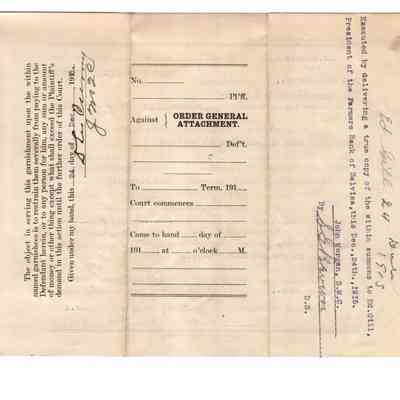 The object in serving this garnishment upon the within
named garnishees is to restrain them severally from paying to the
Defendant herein, or to any person for him, any sum or amount
of money or other thing except what shall exceed the Plaintiff's
demand in this action until the further order of this Court.
Given under my hand, this 24 day of Dec 1925.
J M S C
No.
Pl'ff.
Against
ORDER GENERAL
ATTACHMENT.
Def't.
To Term, 191
Court commences
Came to hand day of
191 at o'clock M.
Executed by delivering a true copy of the within summons to Ed.Gill,
President of the Farmers Bank of Salvisa, this Dec., 24th., 1925.
John Morgan, S.M.C.
By
D.S.
Ed Gill 24 Dec
1925